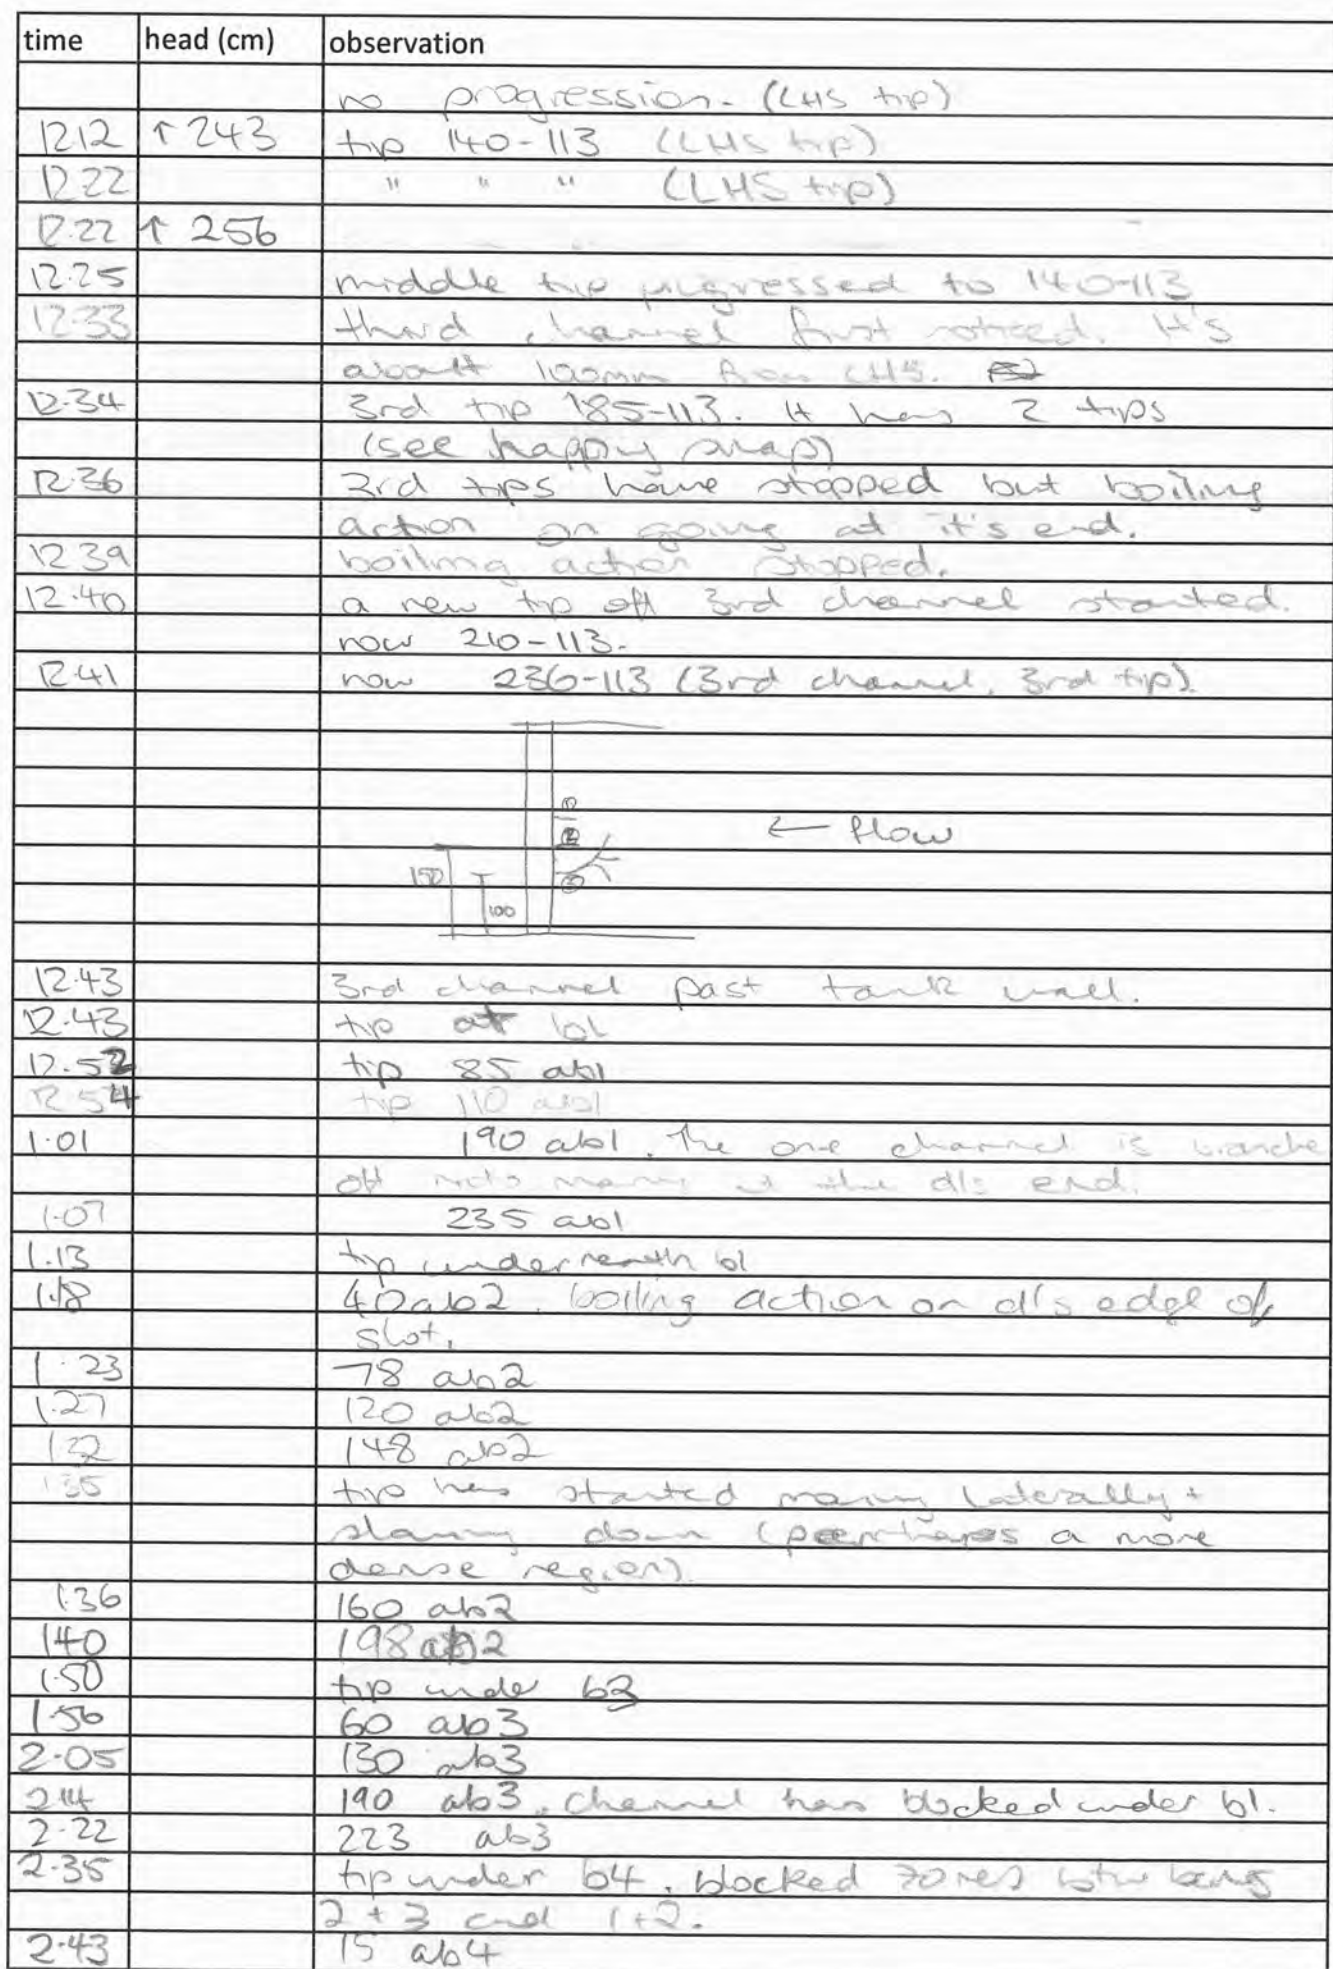 time head (cm) observation
no progression. (LHS tip)
12.12 ↑ 243 tip 140-113 (LHS tip)
12.22 " " " (LHS tip)
12.22 ↑ 256
12.25 middle tip progressed to 140-113
12.33 third channel first noticed. It's
about 100mm from LHS.
12.34 3rd tip 185-113. It has 2 tips
(see happy snap)
12.36 3rd tips have stopped but boiling
action on going at it's end.
12.39 boiling action stopped.
12.40 a new tip off 3rd channel started.
now 210-113.
12.41 now 236-113 (3rd channel, 3rd tip).
① 
② ← flow
150 ③
100
12.43 3rd channel past tank wall.
12.43 tip at b1
12.52 tip 85 ab1
12.54 tip 110 ab1
1.01 190 ab1. The one channel is branche
off into many at the d/s end.
1.07 235 ab1
1.13 tip underneath b1
1.18 40ab2. boiling action on d/s edge of
slot.
1.23 78 ab2
1.27 120 ab2
1.32 148 ab2
1.35 tip has started moving laterally +
slowing down (perhaps a more
dense region).
1.36 160 ab2
1.40 198 ab2
1.50 tip under b3
1.56 60 ab3
2.05 130 ab3
2.14 190 ab3. channel has blocked under b1.
2.22 223 ab3
2.35 tip under b4. blocked zones btw
2+3 and 1+2.
2.43 15 ab4